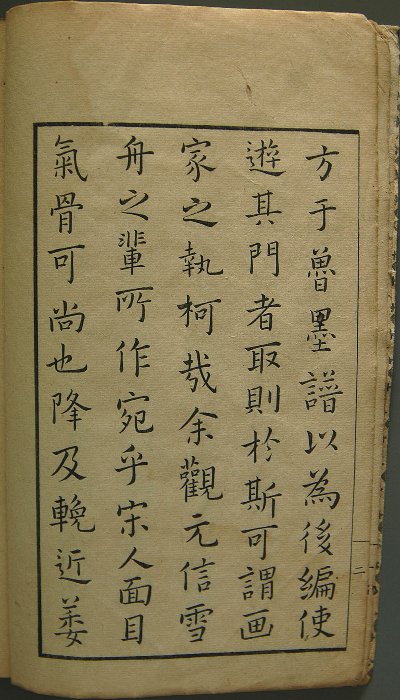 方于魯墨譜以為後編使
遊其門者取則於斯可謂画
家之執柯哉余觀元信雪
舟之輩所作宛乎宋人面目
氣骨可尚也降及輓近萎
二